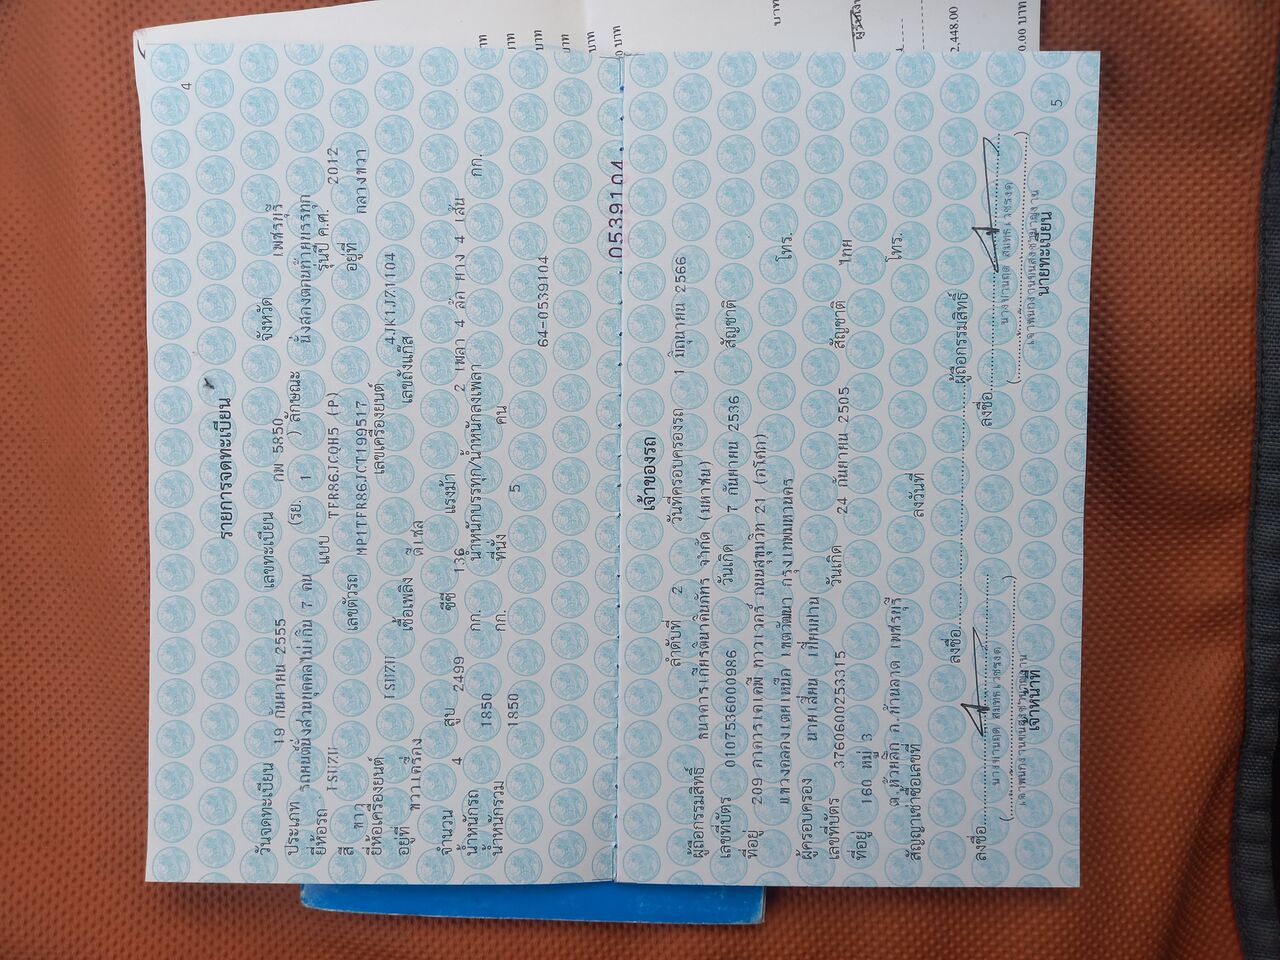 4
รายการจดทะเบียน
วันจดทะเบียน 19 กันยายน 2555 เลขทะเบียน กพ 5850 จังหวัด เพชรบุรี
ประเภท รถยนต์นั่งส่วนบุคคลไม่เกิน 7 คน (รย. 1 ) ลักษณะ นั่งสองตอนท้ายบรรทุก
ยี่ห้อรถ ISUZU แบบ TFR86JCQH5 (P) รุ่นปี ค.ศ. 2012
สี ขาว เลขตัวรถ MP1TFR86JCT199517 อยู่ที่ กลางขวา
ยี่ห้อเครื่องยนต์ ISUZU เลขเครื่องยนต์ 4JK1JZ1104
อยู่ที่ ขวาเครื่อง เชื้อเพลิง ดีเซล เลขถังแก๊ส
จำนวน 4 สูบ 2499 ซีซี 136 แรงม้า 2 เพลา 4 ล้อ ยาง 4 เส้น
น้ำหนักรถ 1850 กก. น้ำหนักบรรทุก/น้ำหนักลงเพลา กก.
น้ำหนักรวม 1850 กก. ที่นั่ง 5 คน
64-0539104
0539104
เจ้าของรถ
ลำดับที่ 2 วันที่ครอบครองรถ 1 มิถุนายน 2566
ผู้ถือกรรมสิทธิ์ ธนาคารเกียรตินาคินภัทร จำกัด (มหาชน)
เลขที่บัตร 0107536000986 วันเกิด 7 กันยายน 2536 สัญชาติ
ที่อยู่ 209 อาคารเคเคพี ทาวเวอร์ ถนนสุขุมวิท 21 (อโศก)
แขวงคลองเตยเหนือ เขตวัฒนา กรุงเทพมหานคร โทร.
ผู้ครอบครอง นายเลี่ยน เทียมผาน
เลขที่บัตร 3760600253315 วันเกิด 24 กันยายน 2505 สัญชาติ ไทย
ที่อยู่ 160 หมู่ 3
ต.ห้วยลึก อ.บ้านลาด เพชรบุรี โทร.
สัญญาเช่าซื้อเลขที่ ลงวันที่
ลงชื่อ ผู้ถือกรรมสิทธิ์
ลงชื่อ ลงชื่อ
เจ้าหน้าที่ นายทะเบียน
5
บาท
2,448.00
0.00 บาท